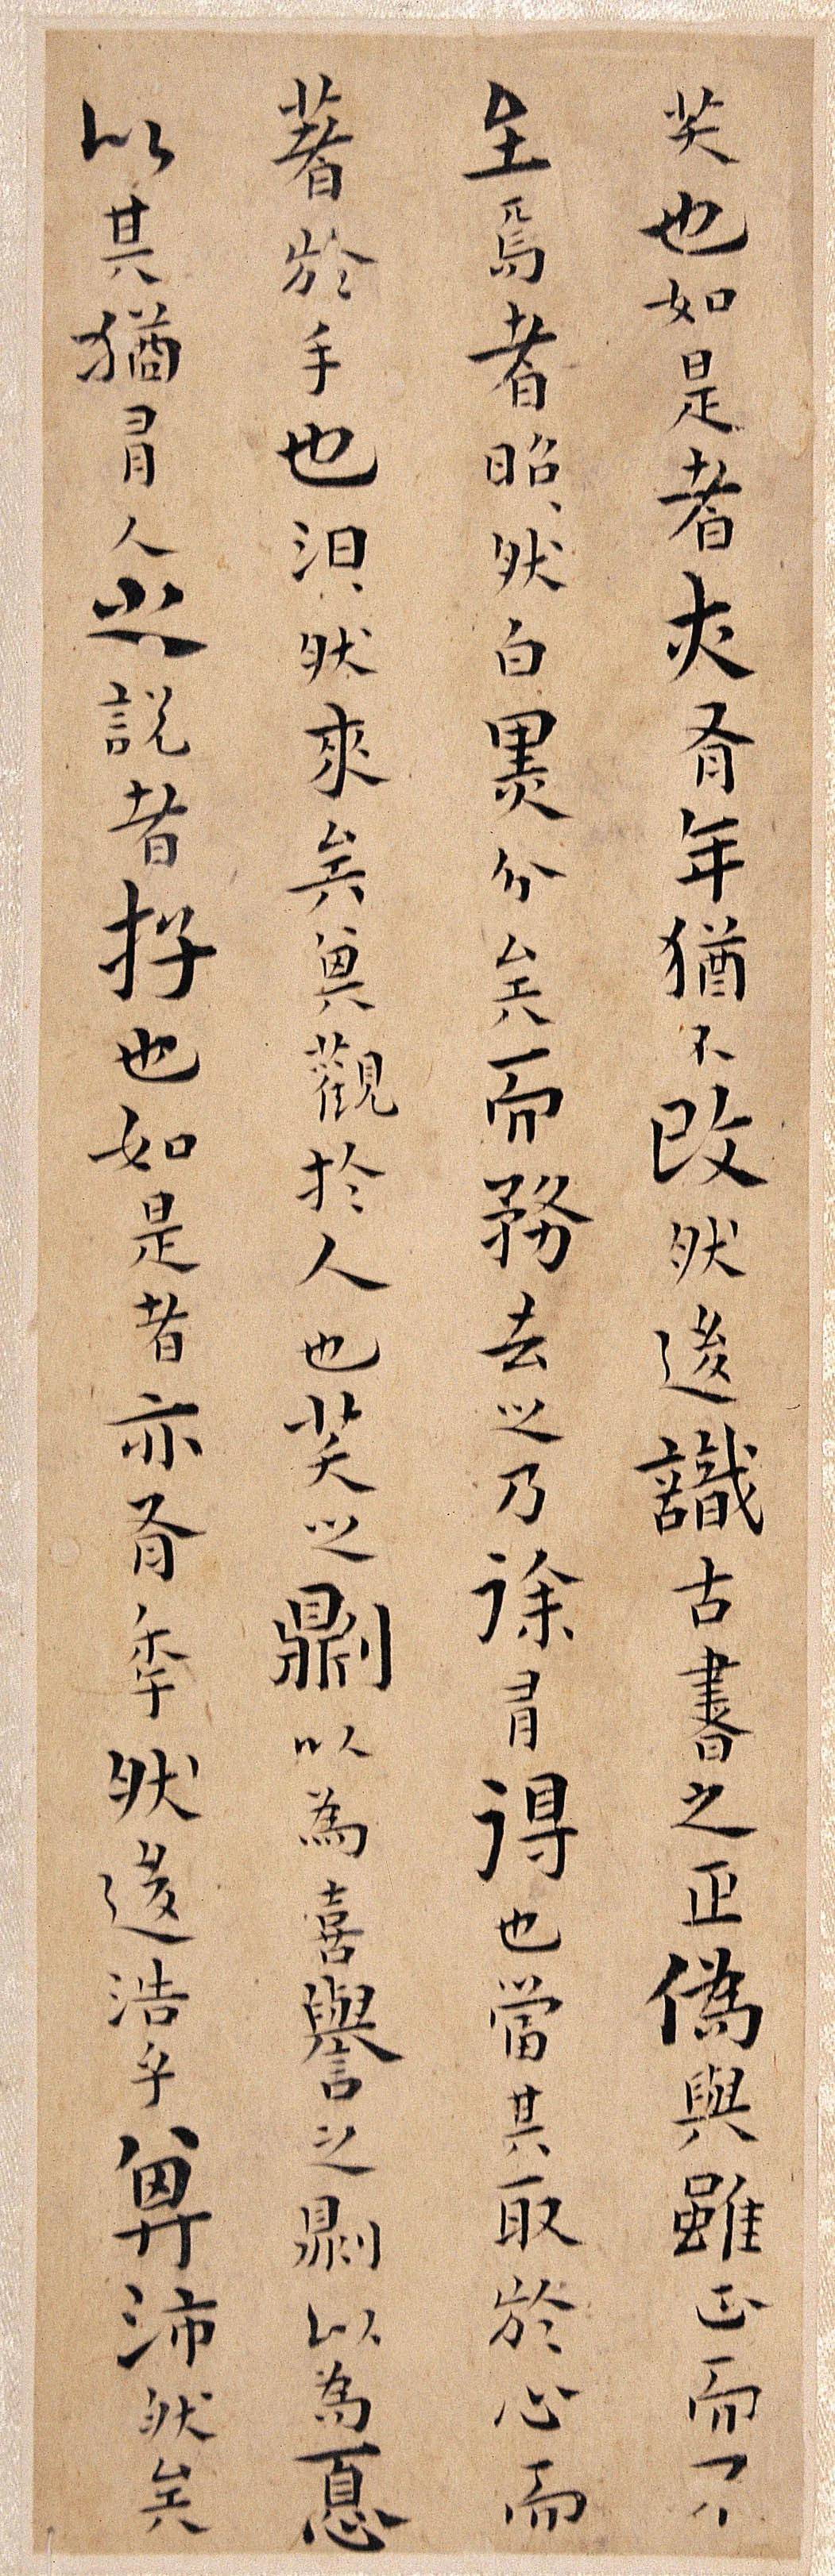 笑也如是者亦有年猶不改然後識古書之正偽與雖正而不
至焉者昭々然白黑分矣而務去之乃徐有得也當其取於心而
著於手也汩々然來矣其觀於人也笑之則以為喜譽之則以為憂
以其猶有人之說者存也如是者亦有年然後浩乎其沛然矣